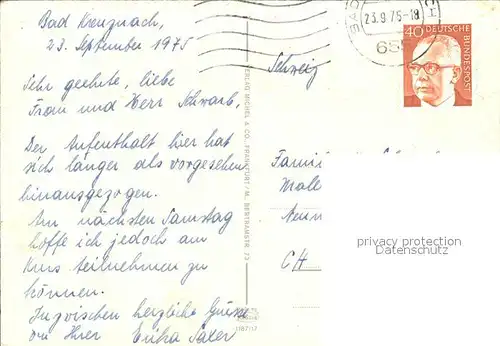 Bad Kreuznach,
23. September 1975
Sehr geehrte, liebe
Frau und Herr Schwarb,
Der Aufenthalt hier hat
sich länger als vorgesehen
hinausgezogen.
Am nächsten Samstag
hoffe ich jedoch am
Kurs teilnehmen zu
können.
Inzwischen herzliche Grüsse
von Ihrer Erika
VERLAG MICHEL & CO., FRANKFURT/M. BERTRAMSTR. 23
1167/17
BAD
23.9.75-18
CH
655
40 DEUTSCHE
BUNDESPOST
Schweiz
Famil
CH
privacy protection
Datenschutz